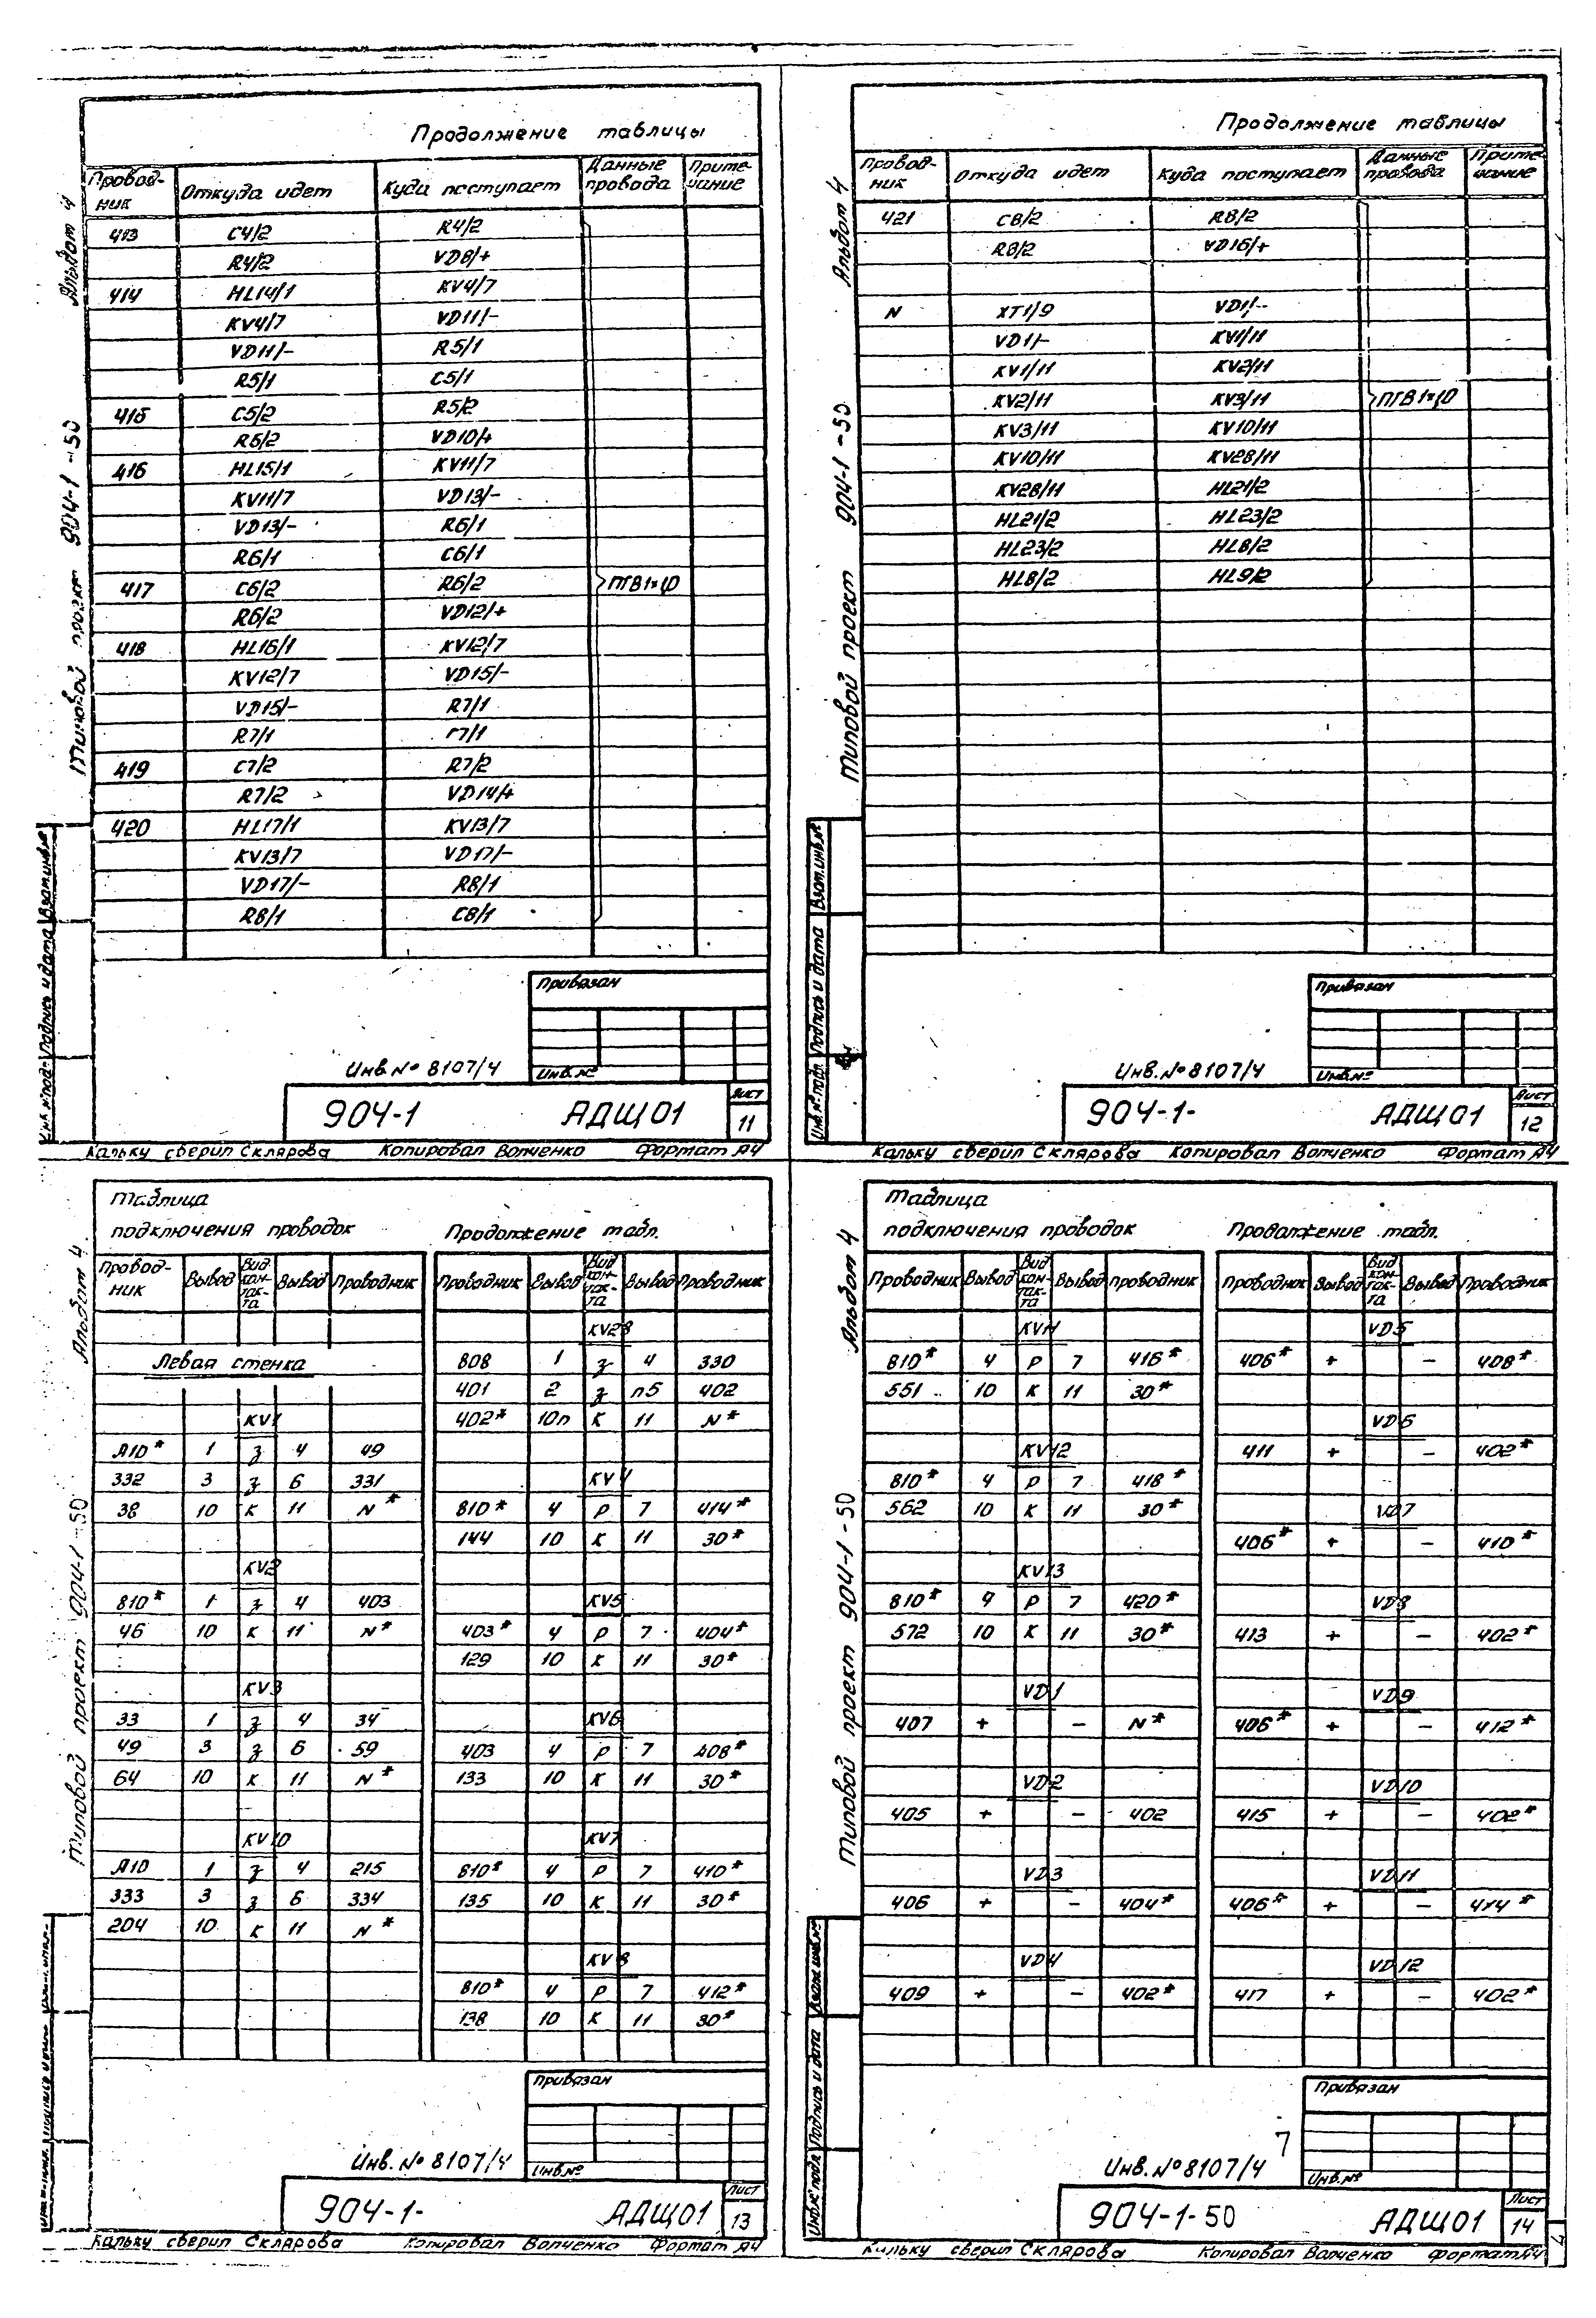 Продолжение таблицы
Провод-ник Откуда идет Куда поступает Данные провода Приме-чание
413 C4/2 R4/2
R4/2 VD8/+
414 HL14/1 KV4/7
KV4/7 VD11/-
VD11/- R5/1
R5/1 C5/1
415 C5/2 R5/2
R6/2 VD10/+
416 HL15/1 KV11/7
KV11/7 VD13/-
VD13/- R6/1
R6/1 C6/1
417 C6/2 R6/2 ПГВ1×1,0
R6/2 VD12/+
418 HL16/1 KV12/7
KV12/7 VD15/-
VD15/- R7/1
R7/1 C7/1
419 C7/2 R7/2
R7/2 VD14/+
420 HL17/1 KV13/7
KV13/7 VD17/-
VD17/- R8/1
R8/1 C8/1
Привязан
Инв.№ 8107/4 Инв.№
904-1 АДЩ01 Лист 11
Кальку сверил Склярова Копировал Волченко Формат А4
Альбом 4
Типовой проект 904-1-50
Инв.№ подл. Подпись и дата Взам.инв.№
Продолжение таблицы
Провод-ник Откуда идет Куда поступает Данные провода Приме-чание
421 C8/2 R8/2
R8/2 VD16/+
N XT1/9 VD1/-
VD1/- KV1/11
KV1/11 KV2/11
KV2/11 KV3/11 ПГВ1×1,0
KV3/11 KV10/11
KV10/11 KV28/11
KV28/11 HL21/2
HL21/2 HL23/2
HL23/2 HL8/2
HL8/2 HL9/2
Привязан
Инв.№ 8107/4 Инв.№
904-1- АДЩ01 Лист 12
Кальку сверил Склярова Копировал Волченко Формат А4
Альбом 4
Типовой проект 904-1-50
Инв.№ подл. Подпись и дата Взам.инв.№
Таблица
подключения проводок Продолжение табл.
Провод-ник Вывод Вид кон-так-та Вывод Проводник Проводник Вывод Вид кон-так-та Вывод Проводник
KV28
Левая стенка 808 1 з 4 330
401 2 з п5 402
KV1 402* 10п К 11 N*
А10* 1 з 4 49
332 3 з 6 331 KV4
38 10 К 11 N* 810* 4 Р 7 414*
144 10 К 11 30*
KV2
810* 1 з 4 403 KV5
46 10 К 11 N* 403* 4 Р 7 404*
129 10 К 11 30*
KV3
33 1 з 4 34 KV6
49 3 з 6 59 403 4 Р 7 408*
64 10 К 11 N* 133 10 К 11 30*
KV10 KV7
А10 1 з 4 215 810* 4 Р 7 410*
333 3 з 6 334 135 10 К 11 30*
204 10 К 11 N*
KV8
810* 4 Р 7 412*
138 10 К 11 30*
Привязан
Инв.№ 8107/4 Инв.№
904-1- АДЩ01 Лист 13
Кальку сверил Склярова Копировал Волченко Формат А4
Альбом 4
Типовой проект 904-1-50
Таблица
подключения проводок Продолжение табл.
Проводник Вывод Вид кон-так-та Вывод Проводник Проводник Вывод Вид кон-так-та Вывод Проводник
KV11 VD5
810* 4 Р 7 416* 406* + - 408*
551 10 К 11 30*
VD6
KV12 411 + - 402*
810* 4 Р 7 418*
562 10 К 11 30* VD7
406* + - 410*
KV13
810* 4 Р 7 420* VD8
572 10 К 11 30* 413 + - 402*
VD1 VD9
407 + - N* 406* + - 412*
VD2 VD10
405 + - 402 415 + - 402*
VD3 VD11
406 + - 404* 406* + - 414*
VD4 VD12
409 + - 402* 417 + - 402*
Привязан
7
Инв.№ 8107/4 Инв.№
904-1-50 АДЩ01 Лист 14
Кальку сверил Склярова Копировал Волченко Формат А4
Альбом 4
Типовой проект 904-1-50
Инв.№ подл. Подпись и дата Взам.инв.№